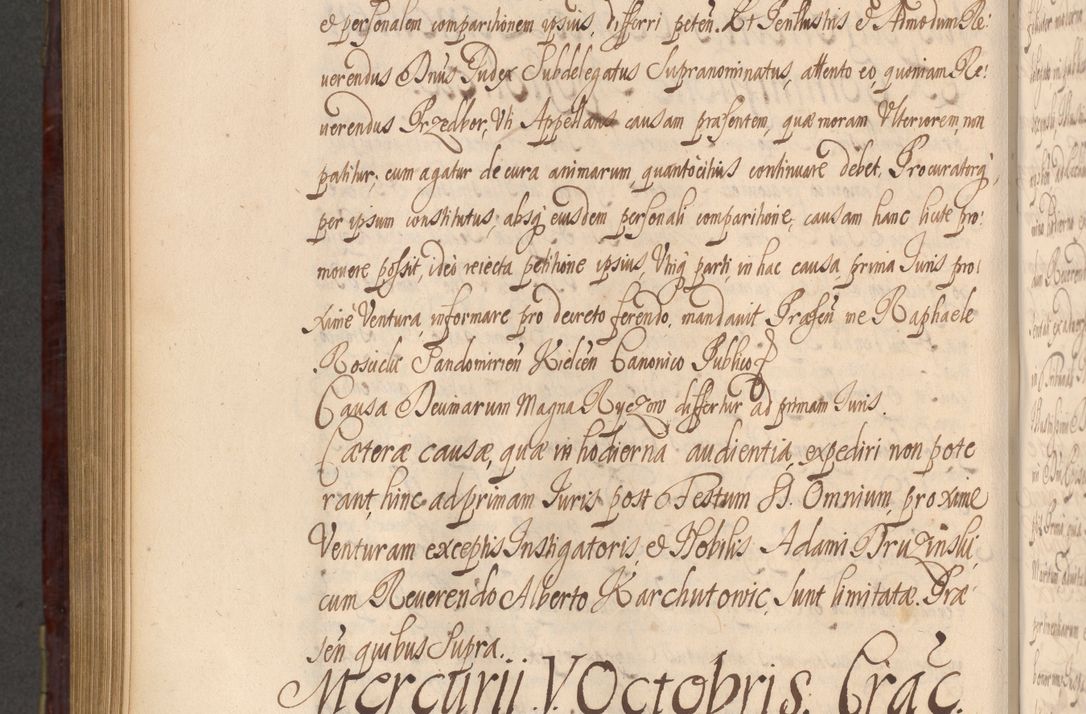 & personalem comparitionem ipsius, differri petēn. Et Perillustris & Admodum Re:
verendus Dnus Judex Subdelegatus Supranominatus, attento eo, quoniam Re:
verendus Przedbor, Uti Appellans causam præsentem, quæ moram Ulteriorem, non
patitur, cum agatur de cura animarum, quantocitius continuare debet, Procuratorq
per ipsum constitutus, absq eiusdem personali comparitione, causam hanc licite pro:
movere possit, ideo reiecta petitione ipsius, Utriq parti, in hac causa prima Juris pro:
xime Ventura, informare pro decreto ferendo, mandavit Præsēn me Raphaele
Rosciclic Sandomirien Kielcen Canonico Publico
Causa Decimarum Magna Ryczow differtur ad primam Juris.
Cæteræ causæ, quæ in hodierna audientia, expediri non pote
rant, hinc ad primam Juris post Festum SS. Omnium, proxime
Venturam exceptis Instigatoris, & Nobilis Adami Pruzinski,
cum Reverendo Alberto Karchutowic, sunt limitatæ. Præ
sēn quibus Supra.
Mercurij V. Octobris. Crac.